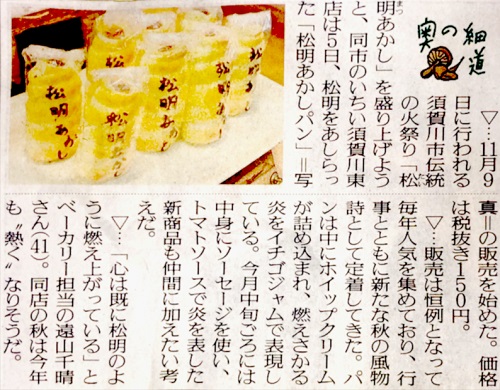 奥の細道
▽…11月9
日に行われる
須賀川市伝統
の火祭り「松
明あかし」を盛り上げよう
と、同市のいちい須賀川東
店は5日、松明をあしらっ
た「松明あかしパン」＝写
真＝の販売を始めた。価格
は税抜き150円。
▽…販売は恒例となって
毎年人気を集めており、行
事とともに新たな秋の風物
詩として定着してきた。パ
ンは中にホイップクリーム
が詰め込まれ、燃えさかる
炎をイチゴジャムで表現し
ている。今月中旬ごろには
中身にソーセージを使い、
トマトソースで炎を表した
新商品も仲間に加えたい考
えだ。
▽…「心は既に松明のよ
うに燃え上がっている」と
ベーカリー担当の遠山千晴
さん(41)。同店の秋は今年
も〝熱く〟なりそうだ。
松明あかし
松明あかし
松明あかし
松明あかし